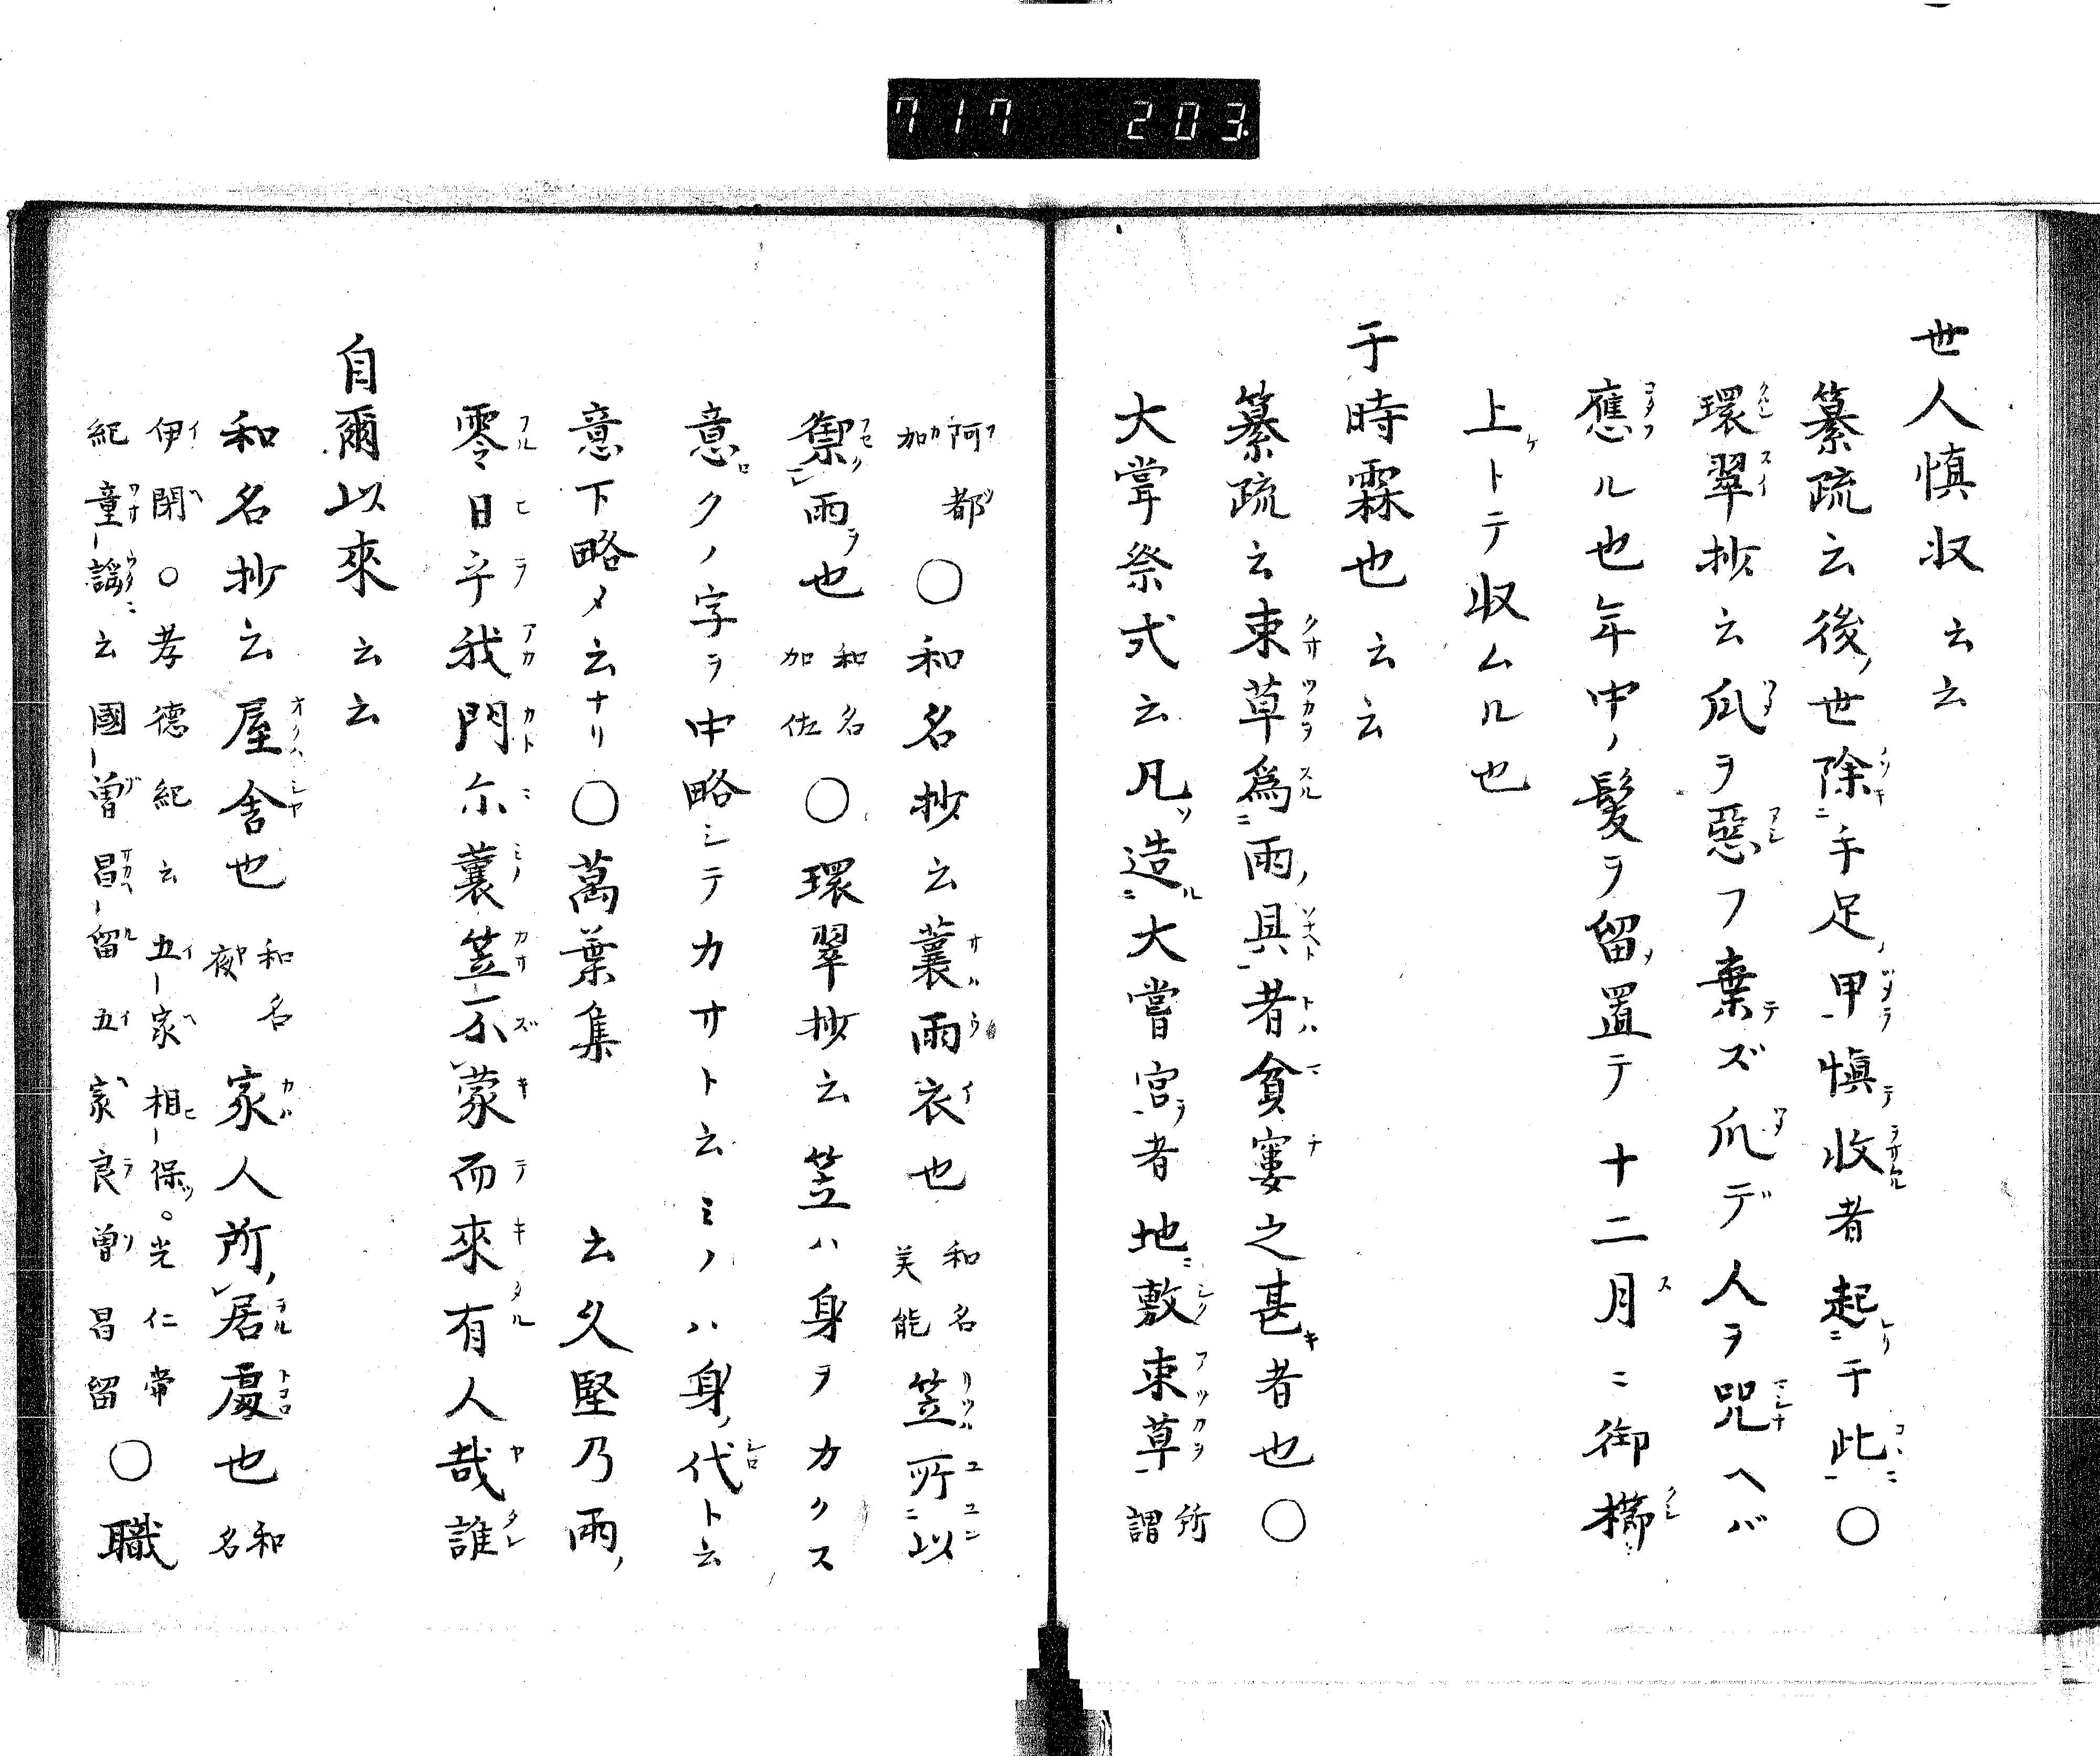 717 203
世人慎収云云
纂疏云後ノ世除ニ手足ノ甲慎テ收者起ニ于此○
環翠抄云爪ヲ惡フ棄テズ爪デ人ヲ咒ヘバ
應ル也年中ノ髮ヲ留メ置テ十二月ニ御櫛
上トテ収ムル也
于時霖也云云
纂疏云束草爲ニ雨ノ具者貧窶之甚キ者也○
大甞祭式云凡造ニ大嘗宮者地ニ敷束草所謂
阿都加○和名抄云蓑雨衣也和名美能笠所ニ以
禦雨ヲ也和名加佐○環翠抄云笠ハ身ヲカクス
意クノ字ヲ中略シテカサト云ミノハ身ノ代ト云
意下略メ云ナリ○萬葉集 云久堅乃雨ノ
零日乎我門尓蓑笠不蒙而來有人哉誰
自爾以來云云
和名抄云屋舍也和名夜家人所ノ居處也和名
伊閉○孝德紀云五家相保○光仁帝
紀童謠ニ云國曽昌留五家良曽昌留○職